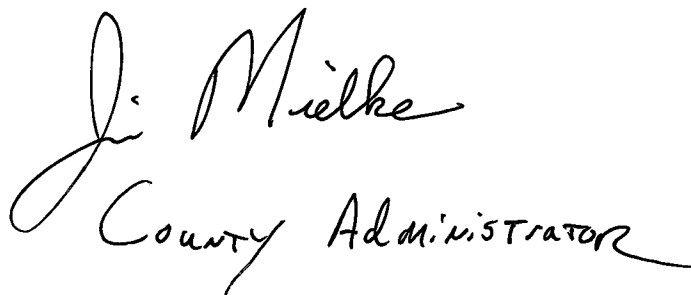 Jim Mielke
County Administrator